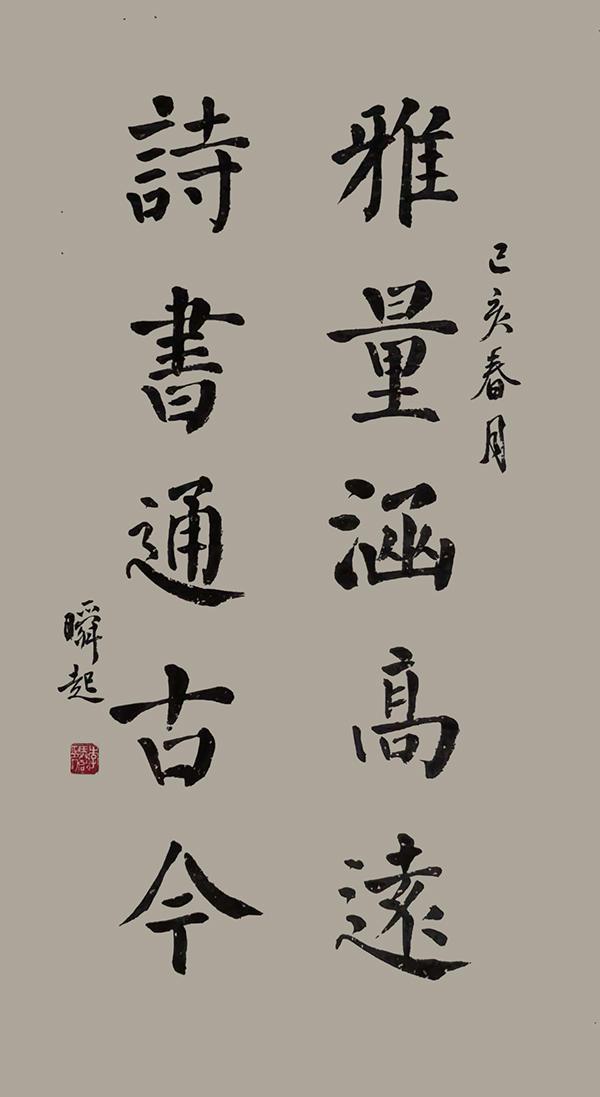 己亥春月
雅量涵高遠
詩書通古今
瞬起